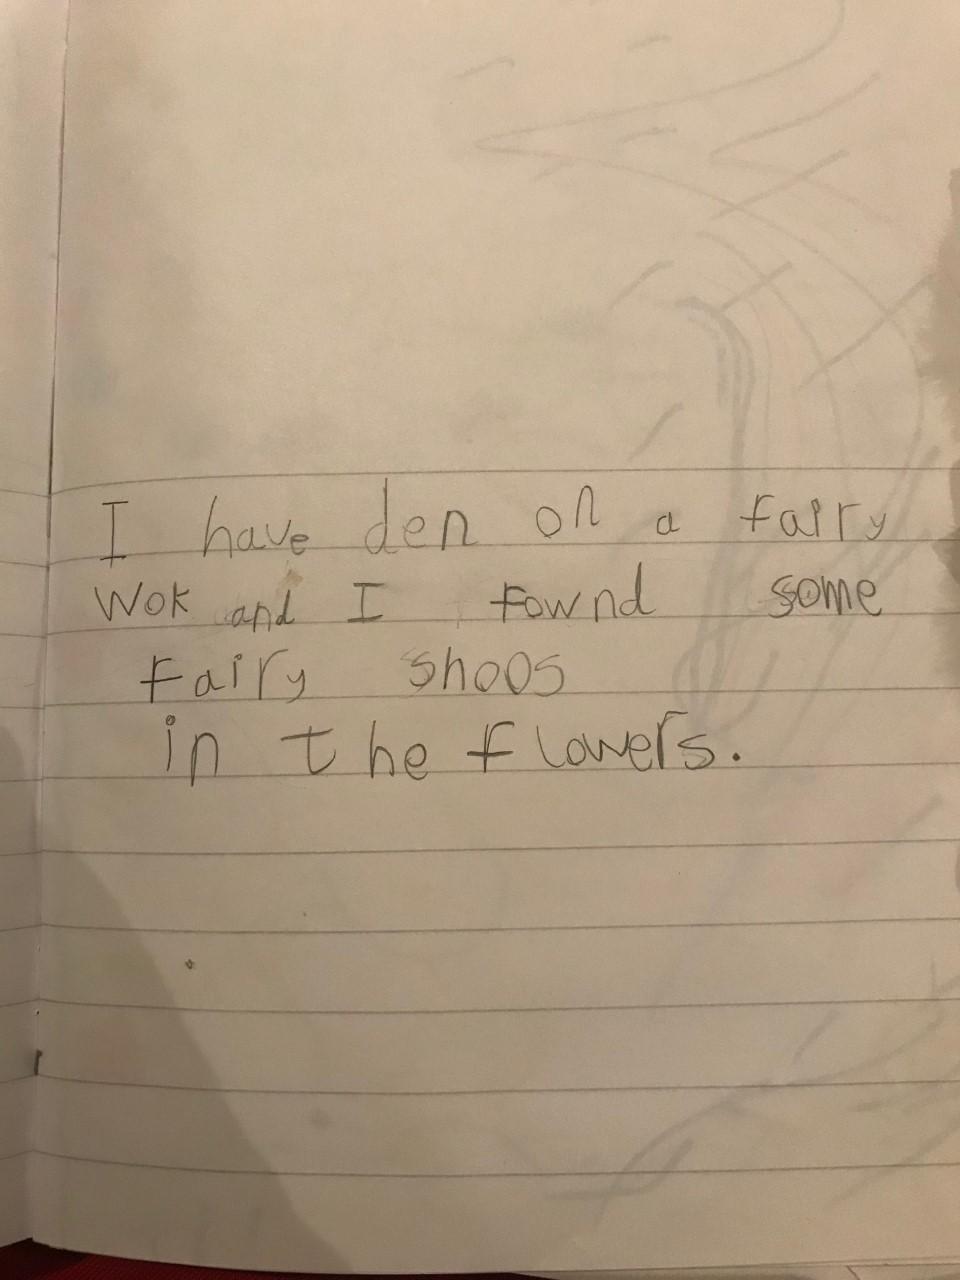 I have den on a fairy
Wok and I fownd some
fairy shoos
in the flowers.